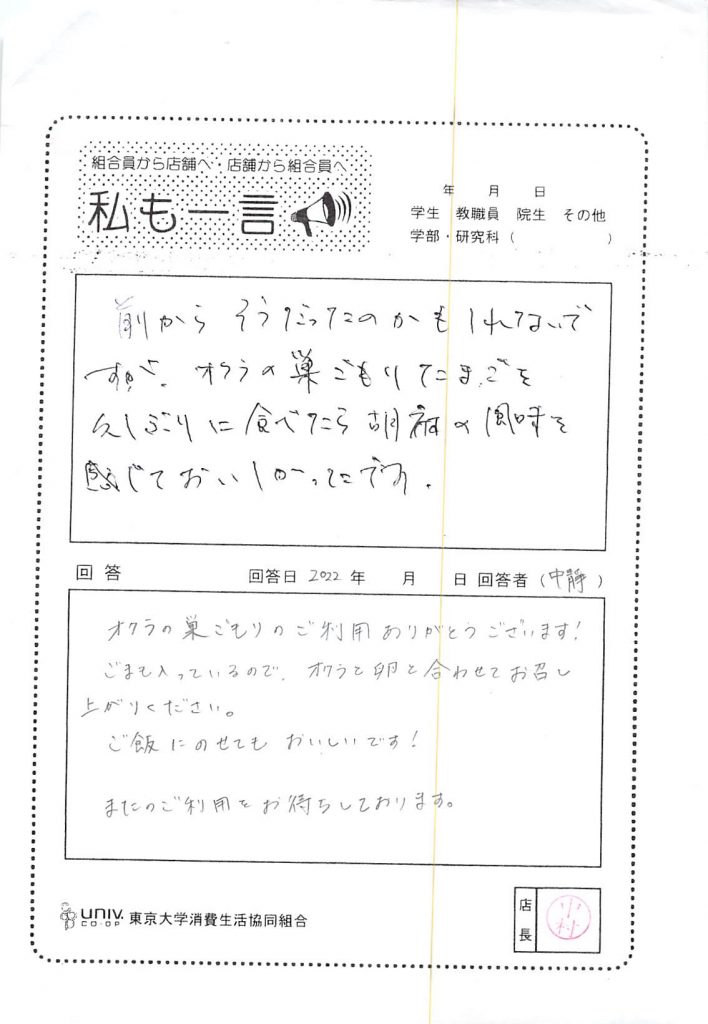 組合員から店舗へ・店舗から組合員へ
私も一言
年 月 日
学生 教職員 院生 その他
学部・研究科（ ）
前から そうだったのかもしれないで
すが、オクラの巣ごもりたまごを
久しぶりに食べたら胡麻の風味を
感じておいしかったです。
回答 回答日 2022 年 月 日 回答者（中静）
オクラの巣ごもりのご利用ありがとうございます！
ごまも入っているので、オクラと卵と合わせてお召し
上がりください。
ご飯にのせても おいしいです！
またのご利用をお待ちしております。
univ. CO-OP 東京大学消費生活協同組合
店長
中村